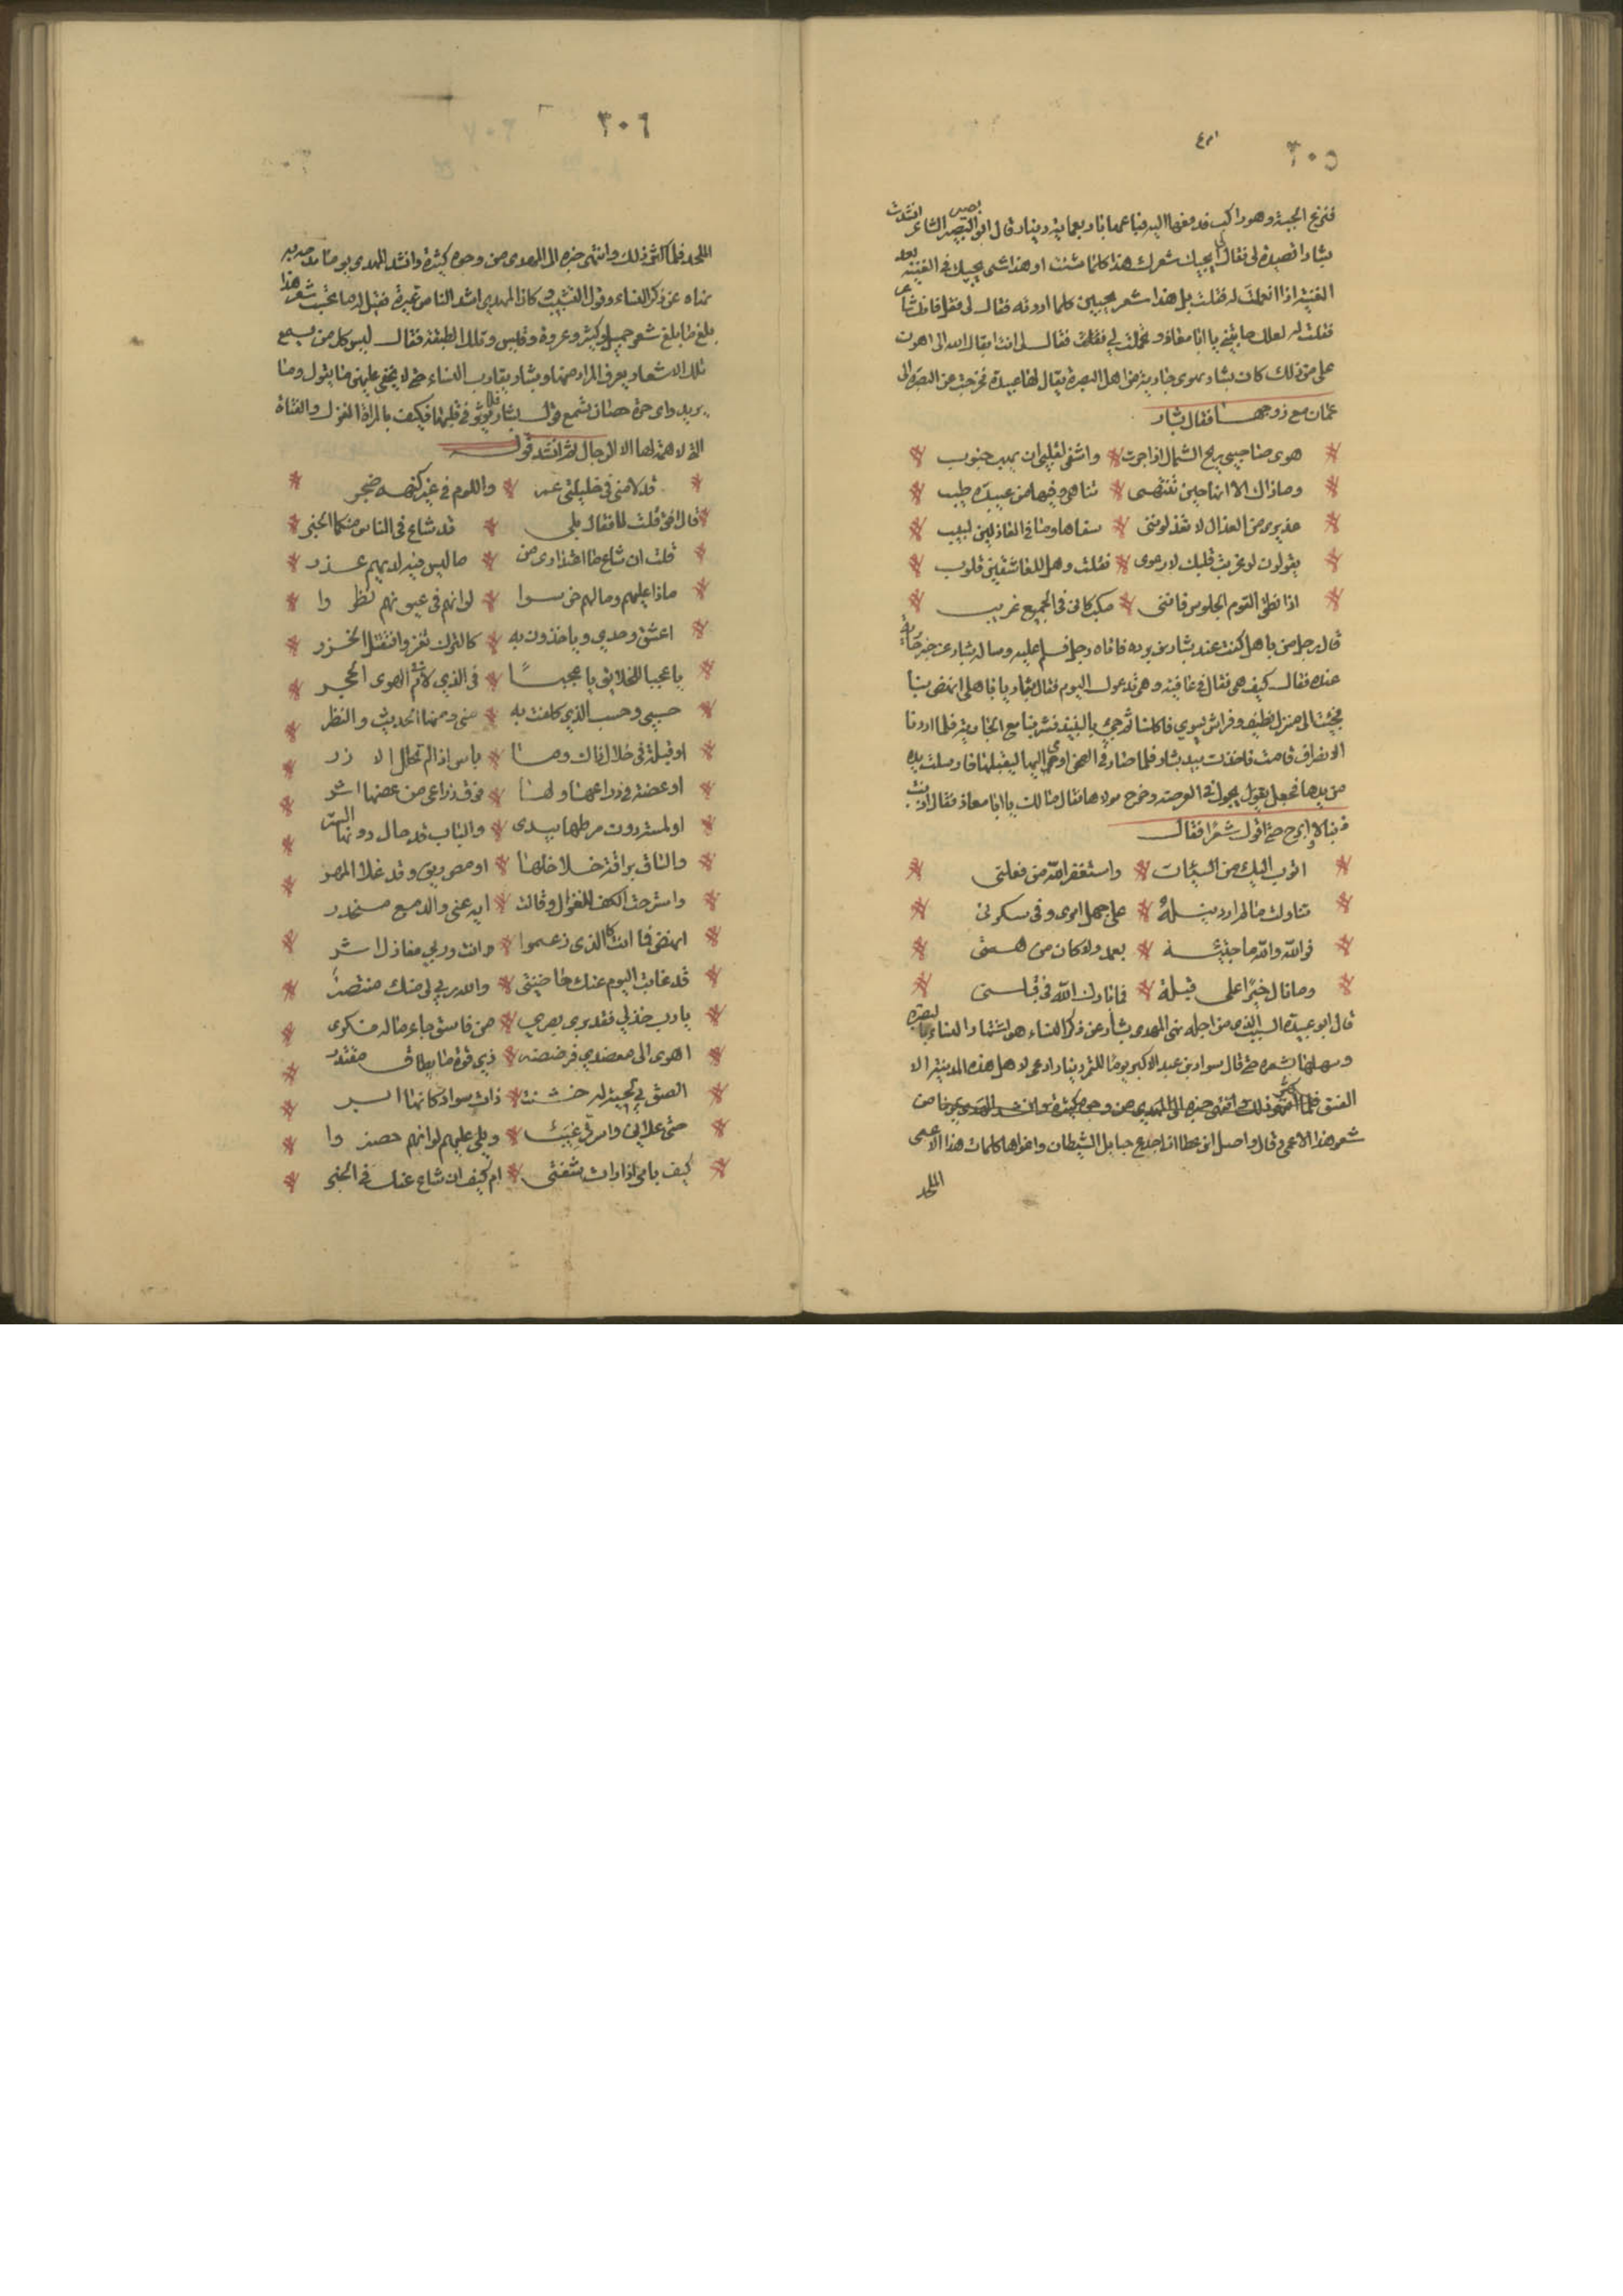 ٣٠٥
فنزع الجبة وهو راكب فدفعها اليه فباعها باربعماية دينار قال ابو النصير الشاعر انشدت
بشارا قصيدة لى فقال لى ايجيك شعرك هذا كلما شئت او هذا شى يجيك فى الفينة بعد
الفينة اذا تعملت له فقلت بل هذا شعر يجيبنى كلما اردته فقال لى قل فانك شاعر
فقلت له لعلك حابيتنى يا ابا معاذ وتحملت لى فقال لى انت ابقاك الله اهون
على من ذلك كان بشار يهوى جارية من اهل البصرة يقال لها عبيدة فخرجت من البصرة الى
عمان مع زوجها فقال بشار
هوى صاحبى ريح الشمال اذا جرت * واشفى لقلبى ان تهب جنوب
وما ذاك الا انها حين تنتهى * تناهى وفيها من عبيدة طيب
عذيرى من العذال لا تعذلوننى * سفاها وما فى العاذلين لبيب
يقولون لو عزيت قلبك لارعوى * فقلت وهل للعاشقين قلوب
اذا نطق القوم الجلوس فاننى * مكب كانى فى الجميع غريب
قال رجل من باهله كنت عند بشار بن برد فاتاه رجل فسلم عليه وساله بشار عن خبر جارية
عنده فقال كيف هى فقال فى عافية وهى تدعوك اليوم فقال بشار يا باهلى انهض بنا
فجئنا الى منزل نظيف وفراش سوى فاكلنا ثم جئ بالنبيذ فشربنا مع الجارية فلما اردنا
الانصراف قامت فاخذت بيد بشار فلما صار فى الصحن اومى اليها ليقبلها فارسلت يده
من يدها فجعل يجول فى العرصة وخرج مولاها فقال مالك يا ابا معاذ فقال اذنبت
ذنبا لا ابرح حتى اقول شعرا فقال
اتوب اليك من السيئات * واستغفر الله من فعلتى
تناولت ما لم ارد نيله * على جهل امرى وفى سكرتى
فوالله والله ما جئته * بعمد ولا كان من همتى
وما نال خيرا على قبلة * فلا بارك الله فى قبلتى
قال ابو عبيدة السبب الذى من اجله نهى المهدى بشار عن ذكر النساء هو اشتهار النساء بالبصرة
وسهلها بشعره حتى قال سوار بن عبد الاكبر يوما لملك بن دينار ادعى لاهل هذه المدينة الا
الفسق
شعر هذا الاعمى وقال واصل ابن عطا ان اخدع حبايل الشيطان واغواها كلمات هذا الاعمى
الملحد
٣٠٦
الملحد فلما كثر ذلك وانتهى خبره الى المهدى من وجوه كثيرة وانشد المهدى يوما ما مدحه به
نهاه عن ذكر النساء وقول التشبيب وكان المهدى اشد الناس غيرة فقيل له ما نحسب شعر هذا
بلغ ما بلغ شعر جميل وكثير وعروة وقيس وتلك الطبقة فقال ليس كل من يسمع
تلك الاشعار يعرف المراد منها وبشار يقارب النساء حتى لا يخفى عليهن ما يقول وما
يريد واى حرة حصان تسمع قول بشار فلا يؤثر فى قلبها فكيف بالمراة الغزل والفتاة
التى لا همة لها الا الرجال ثم انشد قوله
قد لامنى فى خليلتى عمر * واللوم فى غير كنهه ضجر
قال افق قلت لا فقال بلى * قد شاع فى الناس منكما الخبر
قلت ان شاع ما اعتذارى من * ما ليس فيه لديهم عذر
ماذا عليهم وما لهم خرسوا * لو انهم فى عيوبهم نظروا
اعشق وحدى وياخذون به * كالترك تغزوا فتقتل الخزر
يا عجبا للخلاف يا عجبا * فى الذى لام فى الهوى الحجر
حسبى وحسب الذى كلفت به * منى ومنها الحديث والنظر
او قبلة فى خلال ذاك وما * باس اذا لم تحلل الازر
او عضة فى ذراعها ولها * فوق ذراعى من عضها اثر
او لمسة دون مرطها بيدى * والباب قد حال دونها الستر
والساق براقة خلاخلها * او مص ريق وقد علا البهر
واسترخت الكف للغزال وقالت * ايه عنى والدمع منحدر
انهض فما انت كالذى زعموا * وانت وربى مغازل اشر
قد غابت اليوم عنك حاضنتى * والله ربى لى منك منتصر
يا رب خذ لى فقد يرى ضرعى * من فاسق جاء ماله سكرى
اهوى الى معضدى فرضضه * ذى قوة ما يطاق مقتدر
الصق بى لحية له خشنت * ذات سواد كانها الابر
حتى علانى واسرتى غيب * ويلى عليهم لو انهم حضروا
كيف بامى اذا رات شفتى * ام كيف ان شاع عنك ذا الخبر